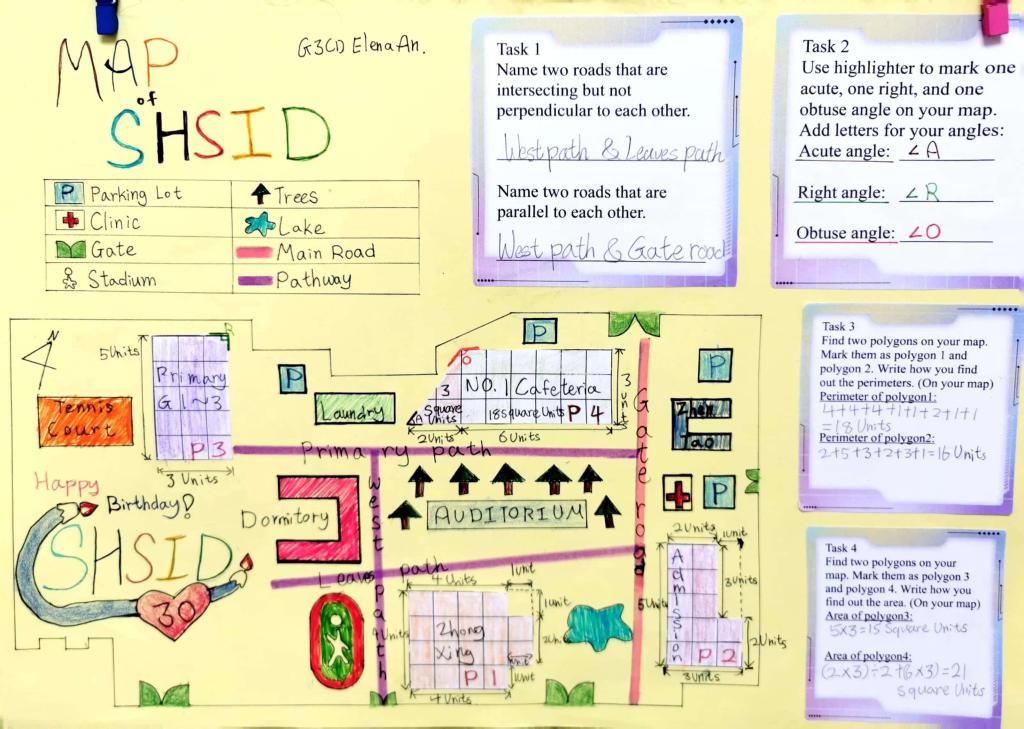 MAP
of
SHSID
G3CD Elena An.
P Parking Lot
Trees
Clinic
Lake
Gate
Main Road
Stadium
Pathway
Task 1
Name two roads that are
intersecting but not
perpendicular to each other.
West path & Leaves path
Name two roads that are
parallel to each other.
West path & Gate road
Task 2
Use highlighter to mark one
acute, one right, and one
obtuse angle on your map.
Add letters for your angles:
Acute angle: ∠A
Right angle: ∠R
Obtuse angle: ∠O
Task 3
Find two polygons on your map.
Mark them as polygon 1 and
polygon 2. Write how you find
out the perimeters. (On your map)
Perimeter of polygon1:
4+4+4+1+1+2+1+1
=18 Units
Perimeter of polygon2:
2+5+3+2+3+1=16 Units
Task 4
Find two polygons on your
map. Mark them as polygon 3
and polygon 4. Write how you
find out the area. (On your map)
Area of polygon3:
5×3=15 Square Units
Area of polygon4:
(2×3)÷2+(6×3)=21
square Units
N
5Units
R
Primary
G1~3
P3
3 Units
Tennis
Court
P
Laundry
P
O
NO.1 Cafeteria
3
Square
Units
18square Units P4
A
2Units
6Units
3 unit
P
Zhen
Tao
P
Gate road
Primary path
west path
Leaves path
AUDITORIUM
Dormitory
Happy
Birthday!
SHSID
30
4 Units
1unit
1unit
2Units
4Units
Zhong
Xing
P1
1unit
4 Units
2Units
1unit
3Units
5Units
Admission
P2
2Units
3Units